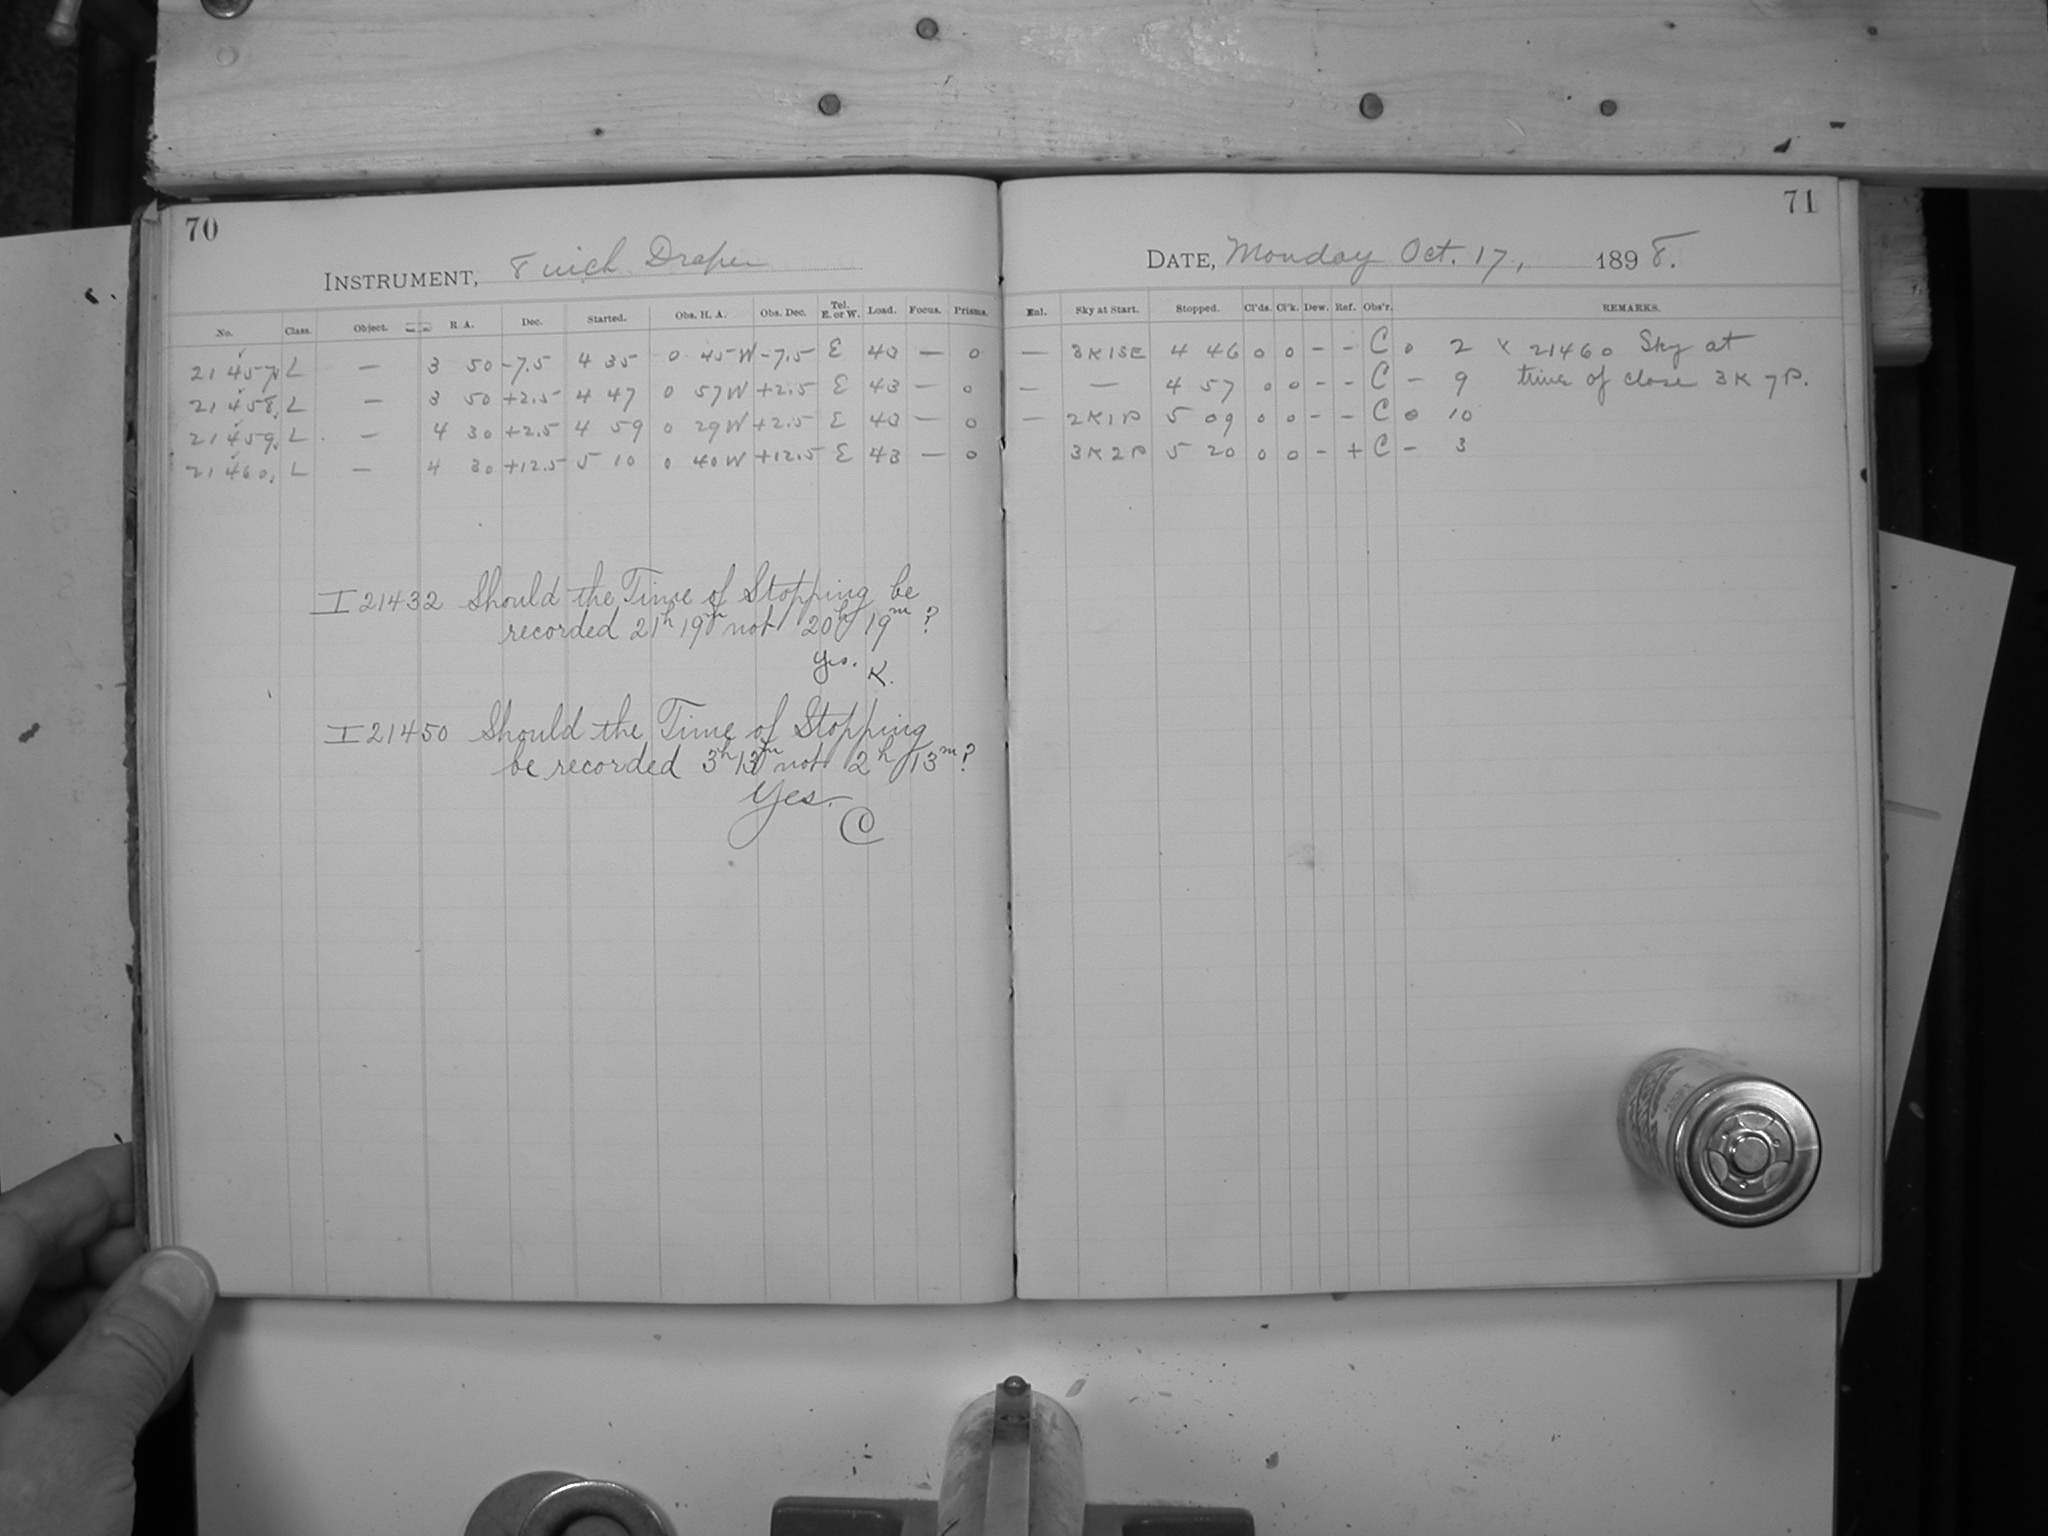 70
INSTRUMENT, 8 inch Draper
No. Class. Object. R. A. Dec. Started. Obs. H. A. Obs. Dec. Tel. E. or W. Load. Focus. Prisms.
21457 L — 3 50 -7.5 4 35 0 45 W -7.5 E 43 — 0
21458 L — 3 50 +2.5 4 47 0 57 W +2.5 E 43 — 0
21459 L — 4 30 +2.5 4 59 0 29 W +2.5 E 43 — 0
21460 L — 4 30 +12.5 5 10 0 40 W +12.5 E 43 — 0
I 21432 Should the Time of Stopping be
recorded 21h 19m not 20h 19m?
Yes. K.
I 21450 Should the Time of Stopping
be recorded 3h 13m not 2h 13m?
Yes.
C
71
DATE, Monday Oct. 17, 1898.
Enl. Sky at Start. Stopped. Cl'ds. Cl'k. Dew. Ref. Obs'r. REMARKS.
— 3K1SE 4 46 0 0 - - C 0 2 x 21460 Sky at
— — 4 57 0 0 - - C - 9 time of close 3K7P.
— 2K1P 5 09 0 0 - - C 0 10
3K2P 5 20 0 0 - + C - 3